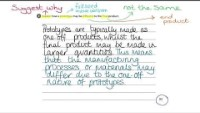 Suggest why not the same
end product
Prototypes are typically made as
one off products, whilst the
final product may be made in
larger quantities. This means
that the manufacturing
processes or materials may
differ due to the one off
nature of prototypes.